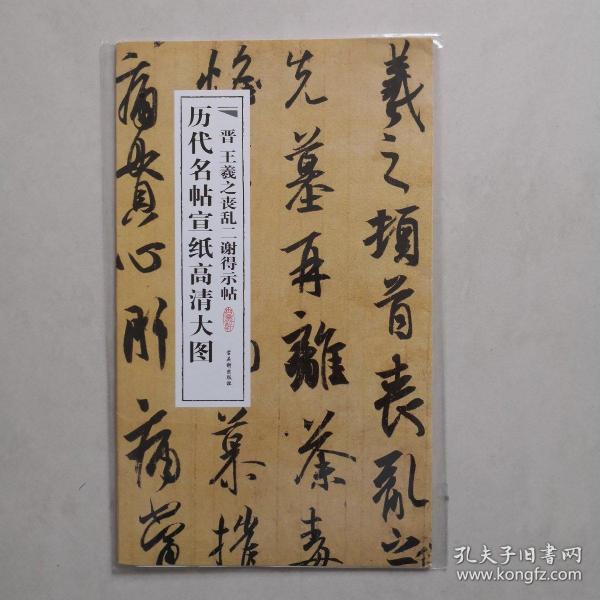 羲之頓首喪亂之
先墓再離荼毒
惟
慕摧
痛貫心肝
痛當
晋 王羲之丧乱二谢得示帖
历代名帖宣纸高清大图
孔夫子旧书网
www.kongfz.com